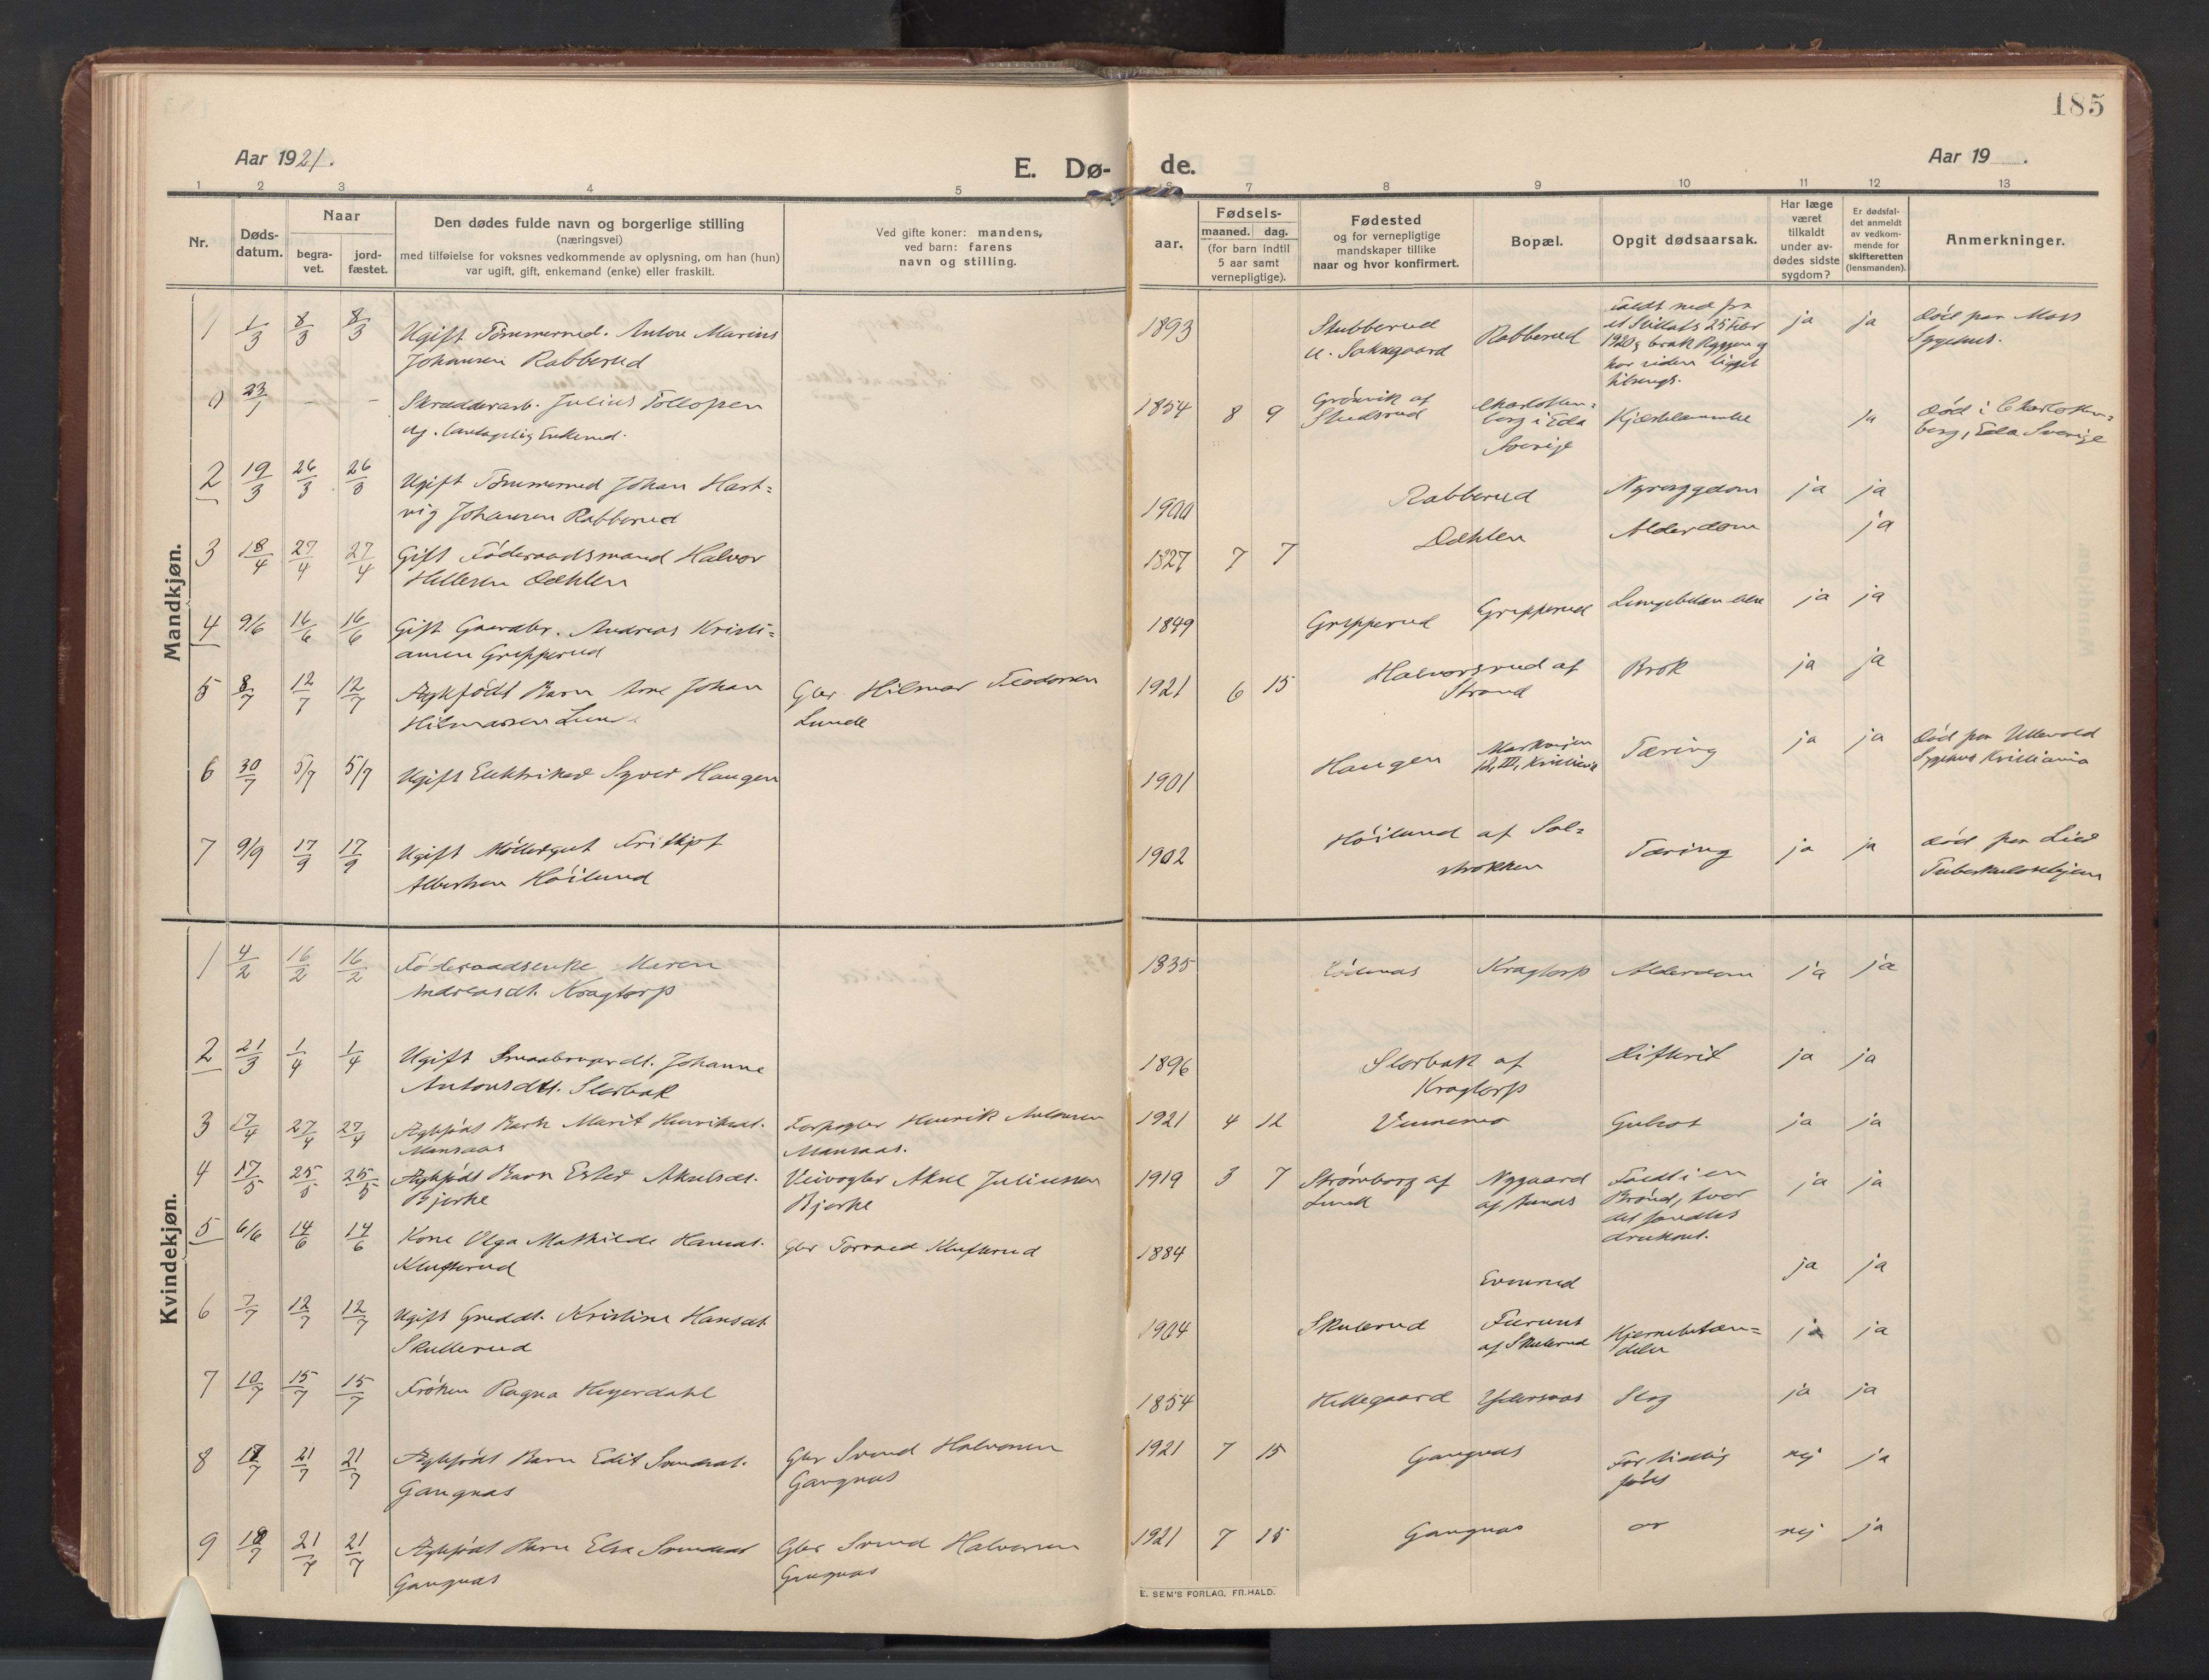 185
Aar 1921.
E. Dø-
de.
Aar 19 .
1 2 3 4 5 6 7 8 9 10 11 12 13
Nr.
Døds-
datum.
Naar
begra-
vet.
jord-
fæstet.
Den dødes fulde navn og borgerlige stilling
(næringsvei)
med tilføielse for voksnes vedkommende av oplysning, om han (hun)
var ugift, gift, enkemand (enke) eller fraskilt.
Ved gifte koner: mandens,
ved barn: farens
navn og stilling.
Fødsels-
aar.
maaned. dag.
(for barn indtil
5 aar samt
vernepligtige).
Fødested
og for vernepligtige
mandskaper tillike
naar og hvor konfirmert.
Bopæl.
Opgit dødsaarsak.
Har læge
været
tilkaldt
under av-
dødes sidste
sygdom?
Er dødsfal-
det anmeldt
av vedkom-
mende for
skifteretten
(lensmanden).
Anmerkninger.
Mandkjøn.
1 1/3 8/3 8/3 Ugift Tømmermd. Anton Marius
Johansen Rabberud
1893 Skubberud
u. Saksgaard
Rabberud
Faldt ned fra
et Stillads 25 Febr
1920 & brak Ryggen og
har siden ligget
tilsengs.
ja ja
Død paa Moss
Sygehus.
0 23/1 - - Skrædderarb. Julius Tollofsen
Enkemd.
1854 8 9 Grønvik af
Studsrud
Charlotten-
berg i Eda
Sverige
Ja
Død i Charlotten-
berg, Eda Sverige
2 19/3 26/3 26/3 Ugift Tømmermd Johan Hart-
vig Johansen Rabberud
1900 Rabberud Nyresygdom ja ja
3 18/4 27/4 27/4 Gift Føderaadsmand Halvor
Hellesen Dæhlen
1827 7 7 Dæhlen Alderdom ja
4 9/6 16/6 16/6 Gift Gaardbr. Andreas Kristi-
ansen Gripperud
1849 Gripperud Gripperud ja ja
5 8/7 12/7 12/7 Ægtefødt Barn Arne Johan
Hilmarsen Lunde
Gbr. Hilmar Teodorsen
Lunde
1921 6 15 Halvorsrud af
Strand
Brok ja ja
6 30/7 5/7 5/7 Ugift Elektriker Syver Haugen
1901 Haugen
Markveien
Kristiania
Tæring ja ja
Død paa Ullevold
Sygehus Kristiania
7 9/9 17/9 17/9 Ugift Møllergut Fritjof
Albertsen Høilund
1902 Høilund af Sol-
strokken
Tæring ja ja
Død paa Lier
Tuberkulosehjem
Kvindekjøn.
1 4/2 16/2 16/2 Føderaadsenke Maren
Andreasdt. Kragtorp
1835 Rødenæs Kragtorp Alderdom ja ja
2 21/3 1/4 1/4 Ugift Smaabrugerdt. Johanne
Antonsdtt. Storbak
1896 Storbak af
Kragtorp
Difterit ja ja
3 17/4 27/4 27/4 Ægtefødt Barn Marit Henriksdt.
Mansaas
Forpagter Henrik Antonsen
Mansaas.
1921 4 12 Gulsot ja ja
4 17/5 25/5 25/5 Ægtefødt Barn Ester Akselsdt.
Bjerke
Veivogter Aksel Juliussen
Bjerke
1919 3 7 Strømborg af
Lund
Nygaard
af Bunds
Faldt i en
Brønd, hvor
det fandtes
druknet.
ja ja
5 6/6 14/6 14/6 Kone Olga Mathilde Hansdt.
Klufterud
Gbr Tormod Klufterud
1884 ja ja
6 7/7 12/7 12/7 Ugift Grmddt. Kristine Hansdt.
Skullerud
1904 Skulerud
Furunes
af Skulerud
Hjernebetæn-
delse
ja ja
7 10/7 15/7 15/7 Frøken Ragna Heyerdahl
1854 Hellegaard Ydersnes Slag ja ja
8 18/7 21/7 21/7 Ægtefødt Barn Edit Svendsdt.
Gangnæs
Gbr Svend Halvorsen
Gangnæs
1921 7 15 Gangnæs
For tidlig
født
nej ja
9 18/7 21/7 21/7 Ægtefødt Barn Elsa Svendsdt
Gangnæs
Gbr Svend Halvorsen
Gangnæs
1921 7 15 Gangnæs nej ja
E. SEM'S FORLAG, FR.HALD.